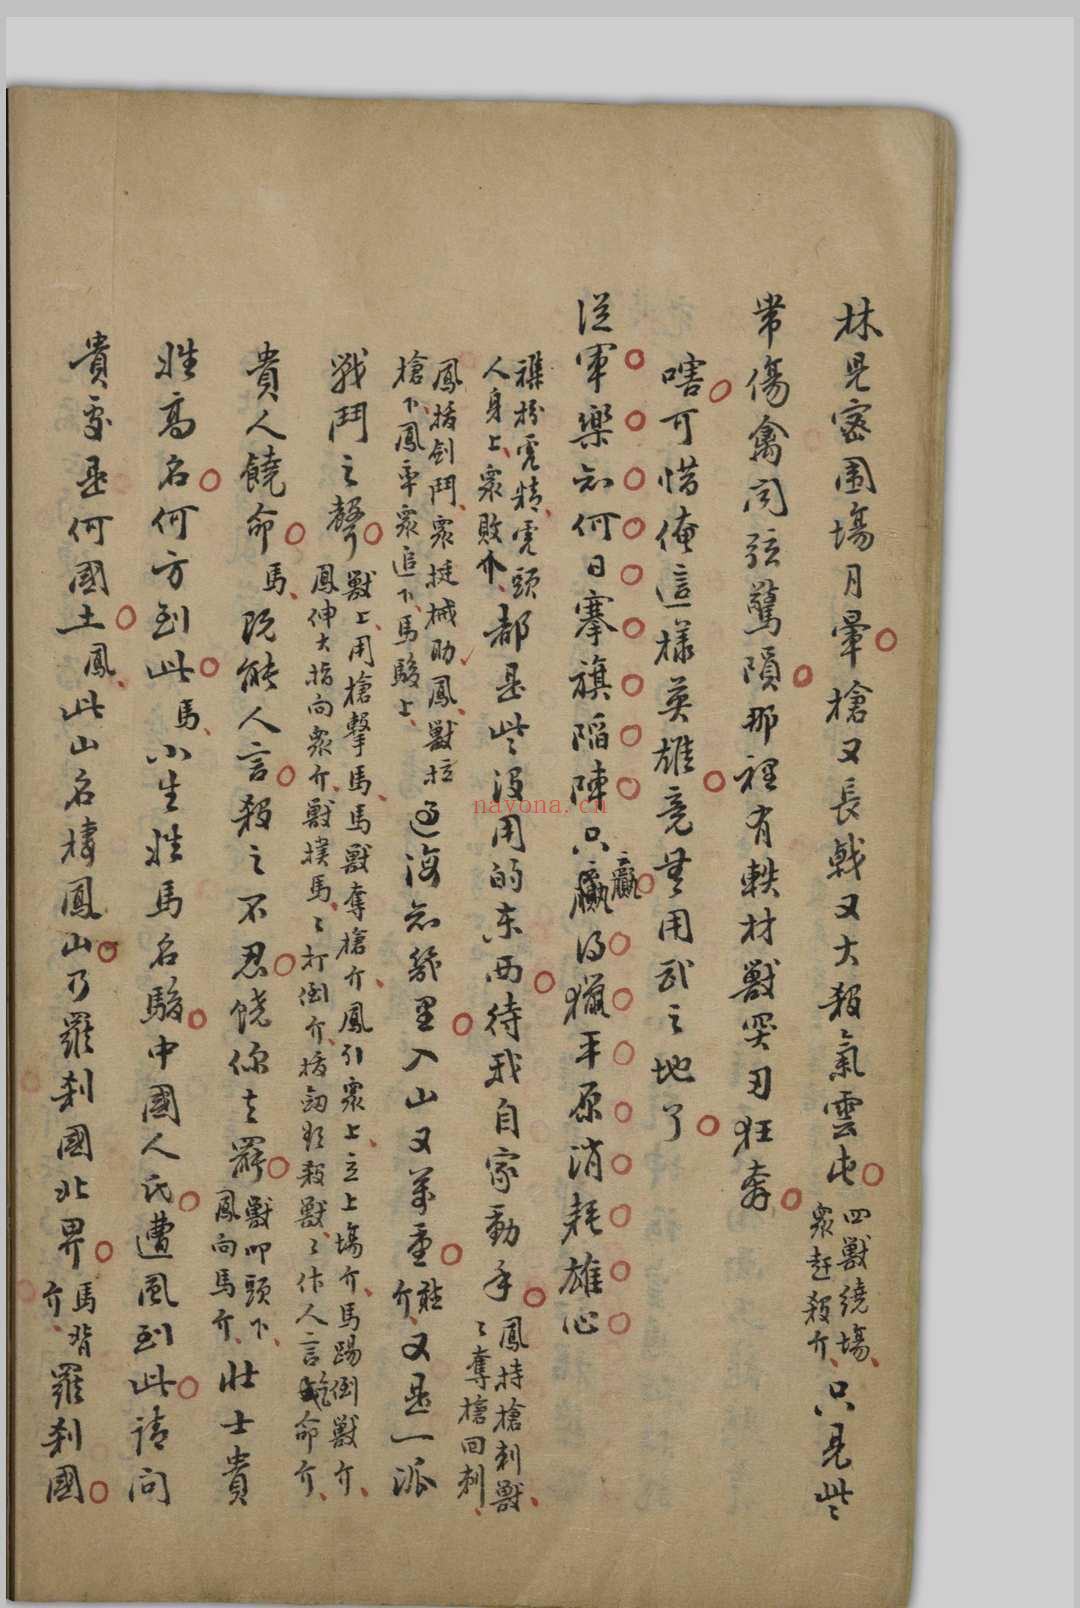 林見密圍場月暈槍又長戟又大殺氣雲屯四獸繞場衆趕殺介只見些
常傷禽聞弦驚隕那裡有軼材獸突刃狂奔
嗐可惜俺這樣英雄竟無用武之地了
從軍樂知何日搴旗陷陣只贏得獵平原消耗雄心
贏
雜扮虎精虎頭人身上衆敗介都是些沒用的东西待我自家動手鳳持槍刺獸獸奪槍回刺
鳳拔劍鬥衆挺械助鳳獸拉槍下鳳率衆追下馬駿上過海知幾里入山又萬重介又是一派
戰鬥之聲獸上用槍擊馬馬獸奪槍介鳳引衆上立上場介馬踢倒獸介鳳伸大指向衆介獸撲馬馬打倒介拔劍欲殺獸獸作人言命介
貴人饒命馬既能人言殺之不忍饒你去罷獸叩頭下鳳向馬介壯士貴
姓高名何方到此馬小生姓馬名駿中國人氏遭風到此請問
貴處是何國土鳳此山名棲鳳山乃羅刹國北界馬背介羅刹國
nayona.cn